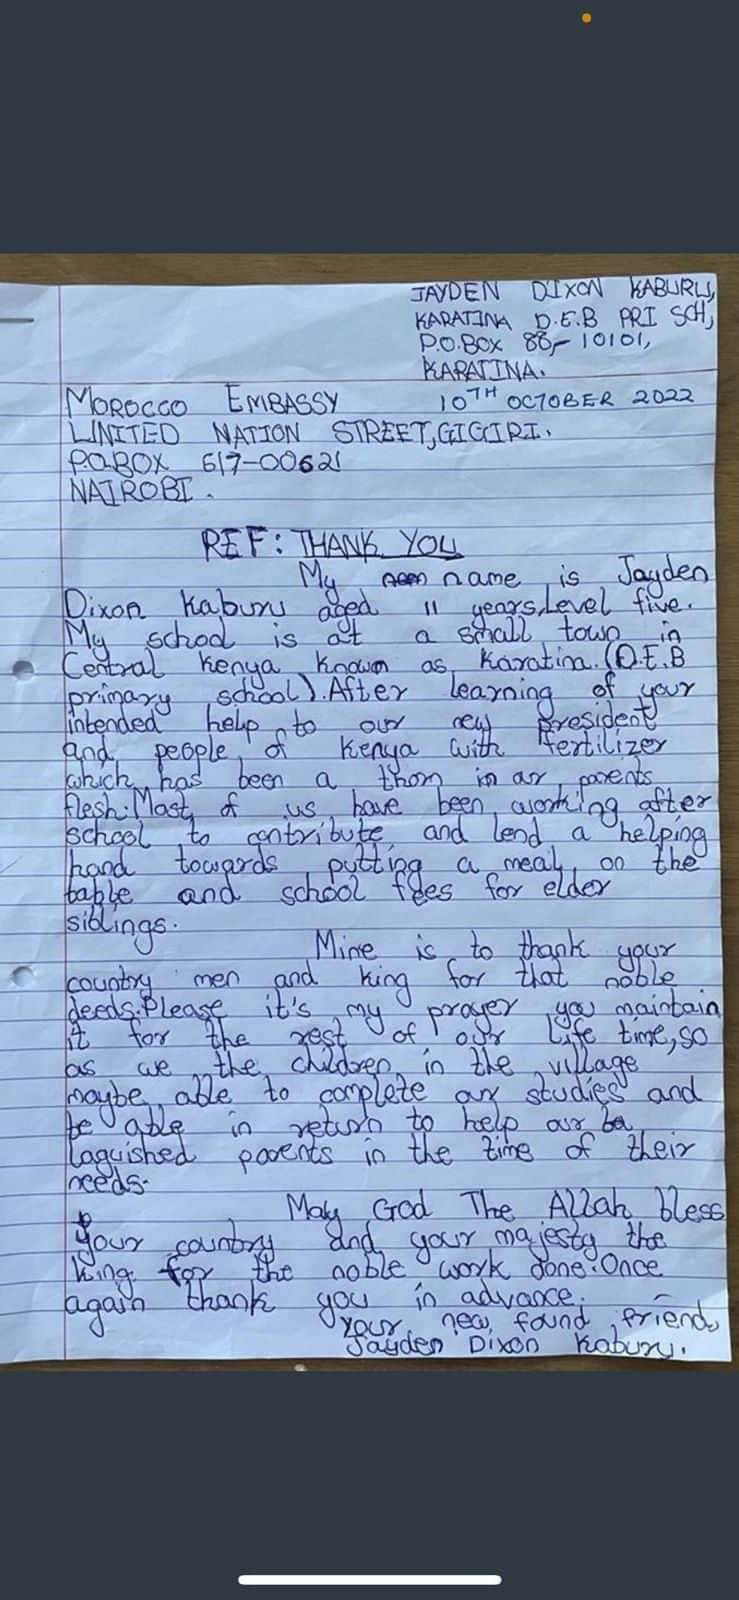 JAYDEN DIXON KABURU,
KARATINA D.E.B PRI SCH,
P.O.BOX 88-10101,
KARATINA.
MOROCCO EMBASSY 10TH OCTOBER 2022
UNITED NATION STREET,GIGIRI.
P.O.BOX 617-00621
NAIROBI.
REF: THANK YOU
My name is Jayden
Dixon Kaburu aged 11 years,level five.
My school is at a small town in
Central Kenya known as Karatina.(D.E.B
primary school).After learning of your
intended help to our new president
and people of Kenya with fertilizer
which has been a thorn in our parents
flesh.Most of us have been working after
school to contribute and lend a helping
hand towards putting a meal on the
table and school fees for elder
siblings.
Mine is to thank your
country men and king for that noble
deeds.Please it's my prayer you maintain
it for the rest of our life time,so
as we the children in the village
maybe able to complete our studies and
be able in return to help our
laguished parents in the time of their
needs.
May God The Allah bless
your country and your majesty the
king for the noble work done.Once
again thank you in advance.
Your new found friend,
Jayden Dixon Kaburu.